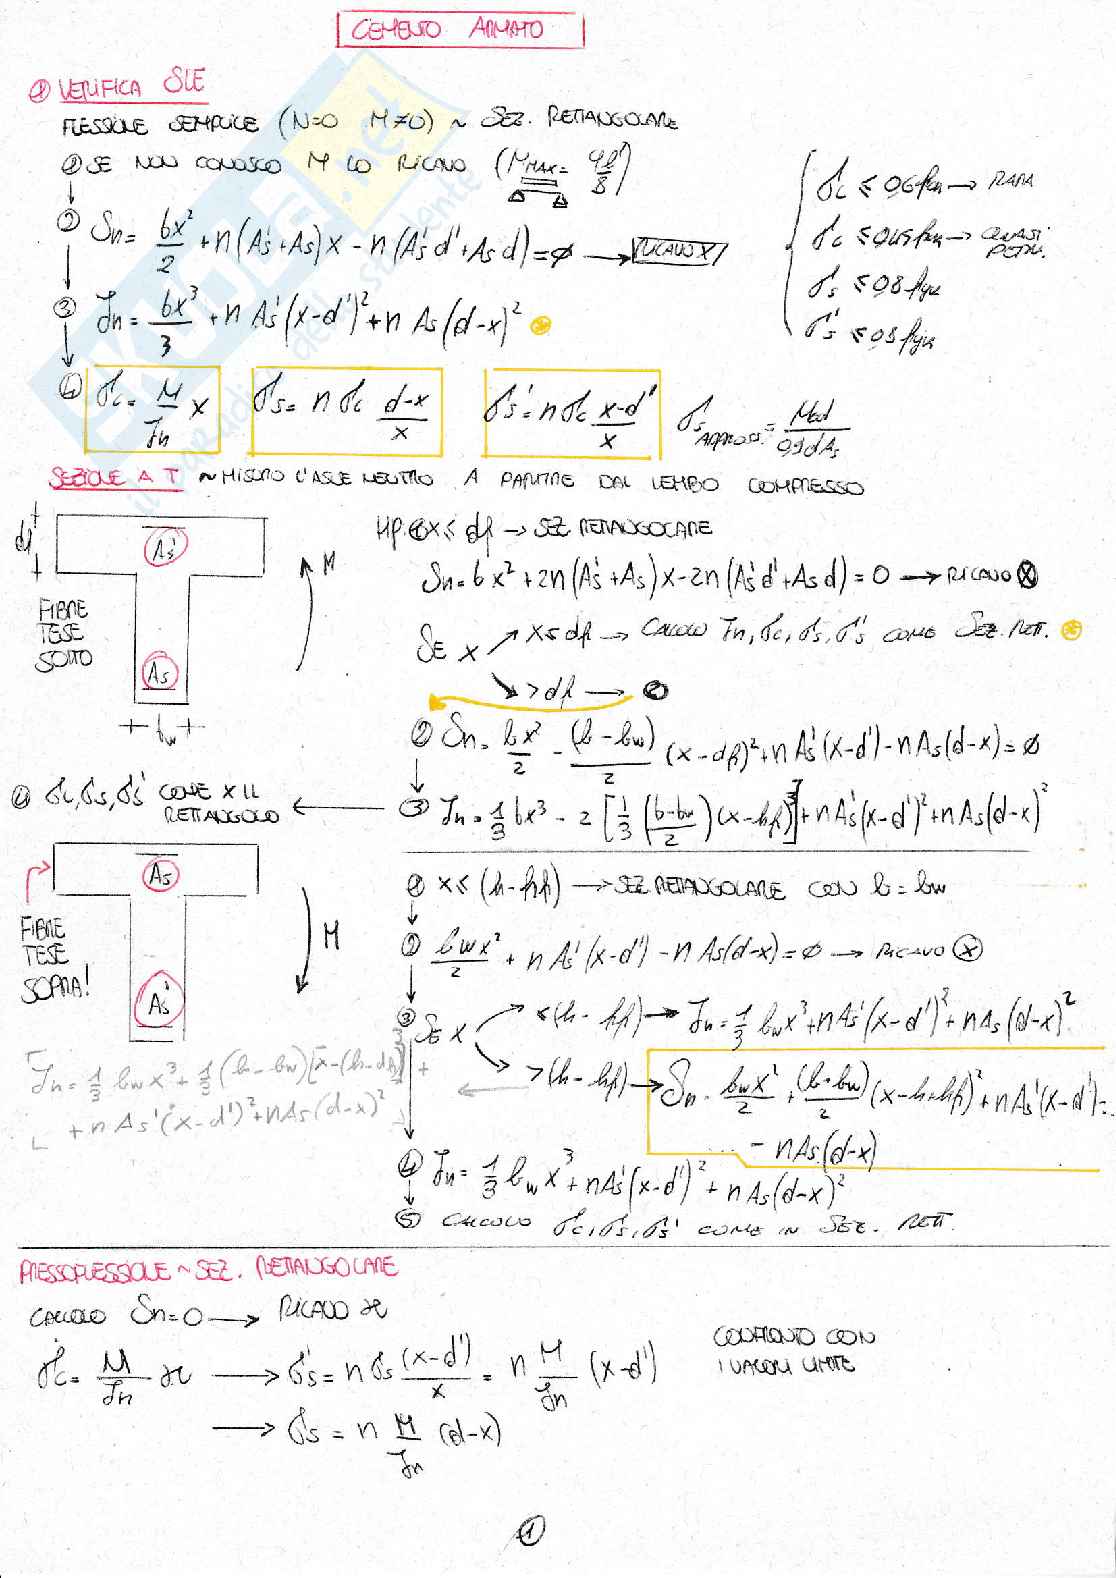 CEMENTO ARMATO
① VERIFICA SLE
FLESSIONE SEMPLICE (N=0 M≠0) ~ SEZ. RETTANGOLARE
① SE NON CONOSCO M LO RICAVO (M_MAX = ql²/8)
② Sn = bx²/2 + n(A's+As)x - n(A's d'+As d) = ∅ → RICAVO X
③ Jn = bx³/3 + n A's(x-d')² + n As(d-x)²
④ σc = M/Jn x
σs = n σc (d-x)/x
σs' = n σc (x-d')/x
σs APPROSS. = Med/0,9dAs
σc ≤ 0,6 fck → RARA
σc ≤ 0,45 fck → QUASI PERM.
σs ≤ 0,8 fyk
σs' ≤ 0,8 fyk
SEZIONE A T ~ MISURO L'ASSE NEUTRO A PARTIRE DAL LEMBO COMPRESSO
df
A's
M
FIBRE
TESE
SOTTO
As
bw
HP. ① x ≤ df → SEZ. RETTANGOLARE
Sn = bx² + 2n(A's+As)x - 2n(A's d'+As d) = 0 → RICAVO X
SE X
x ≤ df → CALCOLO Jn, σc, σs, σs' COME SEZ. RETT.
> df → ②
② Sn = bx²/2 - (b-bw)/2 (x-df)² + n A's(x-d') - n As(d-x) = ∅
③ Jn = 1/3 bx³ - 2[1/3 ((b-bw)/2)(x-hf)³] + n A's(x-d')² + n As(d-x)²
④ σc, σs, σs' COME X IL
RETTANGOLO
As
M
FIBRE
TESE
SOPRA!
As'
① x ≤ (h-hf) → SEZ RETTANGOLARE CON b = bw
② bwx²/2 + n As'(x-d') - n As(d-x) = ∅ → RICAVO X
③ SE X
≤ (h-hf) → Jn = 1/3 bwx³ + n As'(x-d')² + n As(d-x)²
> (h-hf) → Sn = bwx²/2 + (b-bw)/2 (x-h+hf)² + n As'(x-d') -
- n As(d-x)
Jn = 1/3 bwx³ + 1/3 (b-bw)[x-(h-df)]³ +
+ n As'(x-d')² + n As(d-x)²
④ Jn = 1/3 bwx³ + n A's(x-d')² + n As(d-x)²
⑤ CALCOLO σc, σs, σs' COME IN SEZ. RETT.
PRESSOFLESSIONE ~ SEZ. RETTANGOLARE
CALCOLO Sn = 0 → RICAVO x
σc = M/Jn x → σs' = n σs (x-d')/x = n M/Jn (x-d')
→ σs = n M/Jn (d-x)
CONFRONTO CON
I VALORI LIMITE
1